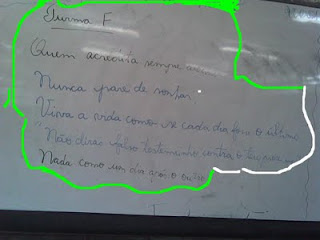 Turma F
Quem acredita sempre
Nunca pare de sonhar
Viva a vida como se cada dia fosse o último
"Não dirás falso testemunho contra o teu
Nada como um dia após o outro